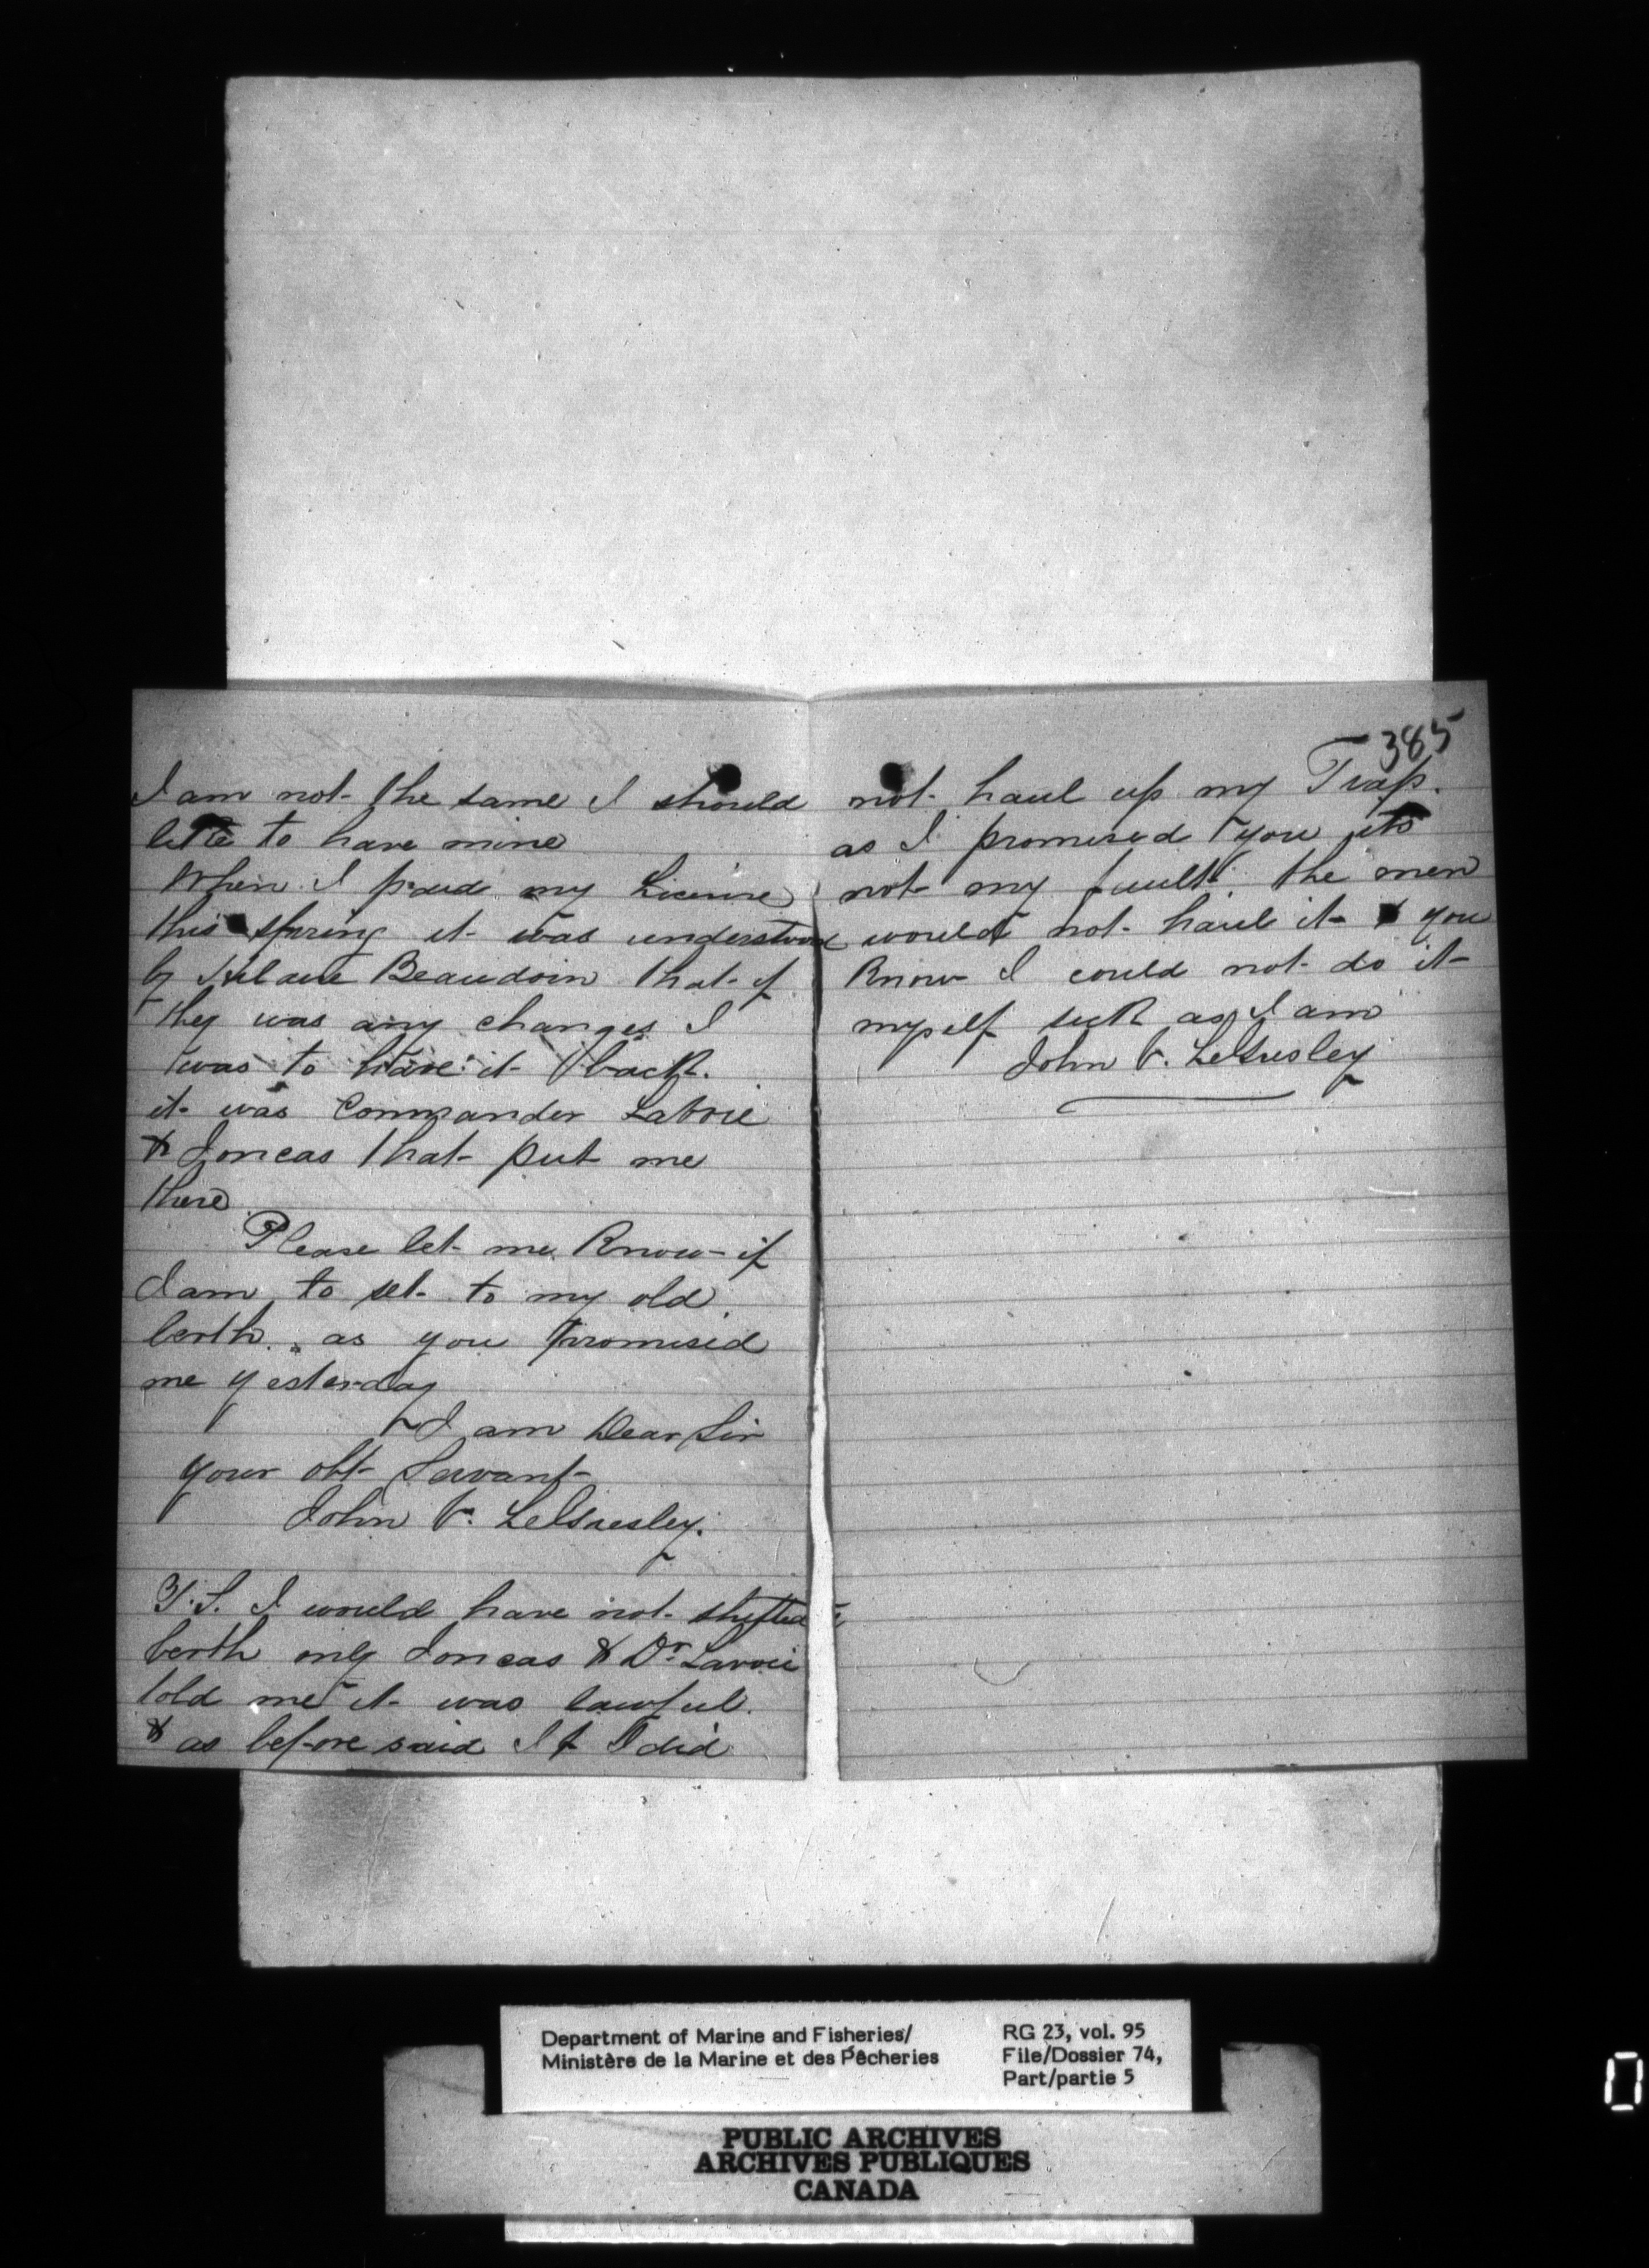 I am not the same I should
like to have mine
When I paid my License
this spring it was understood
by Hilaire Beaudoin that if
they was any changes I
was to have it back.
it was Commander Lavoie
& Joncas that put me
there
Please let me Know if
I am to set to my old
berth as you promised
me yesterday
I am Dear Sir
your obt Servant
John V.
P.S. I would have not shifted
berth only Joncas & Dr. Lavoie
told me it was lawful.
& as before said If I did
385
not haul up my Trap.
as I promised you its
not my fault. the men
would not haul it & you
Know I could not do it
myself sick as I am
John V.
Department of Marine and Fisheries/
Ministère de la Marine et des Pêcheries
RG 23, vol. 95
File/Dossier 74,
Part/partie 5
PUBLIC ARCHIVES
ARCHIVES PUBLIQUES
CANADA
0